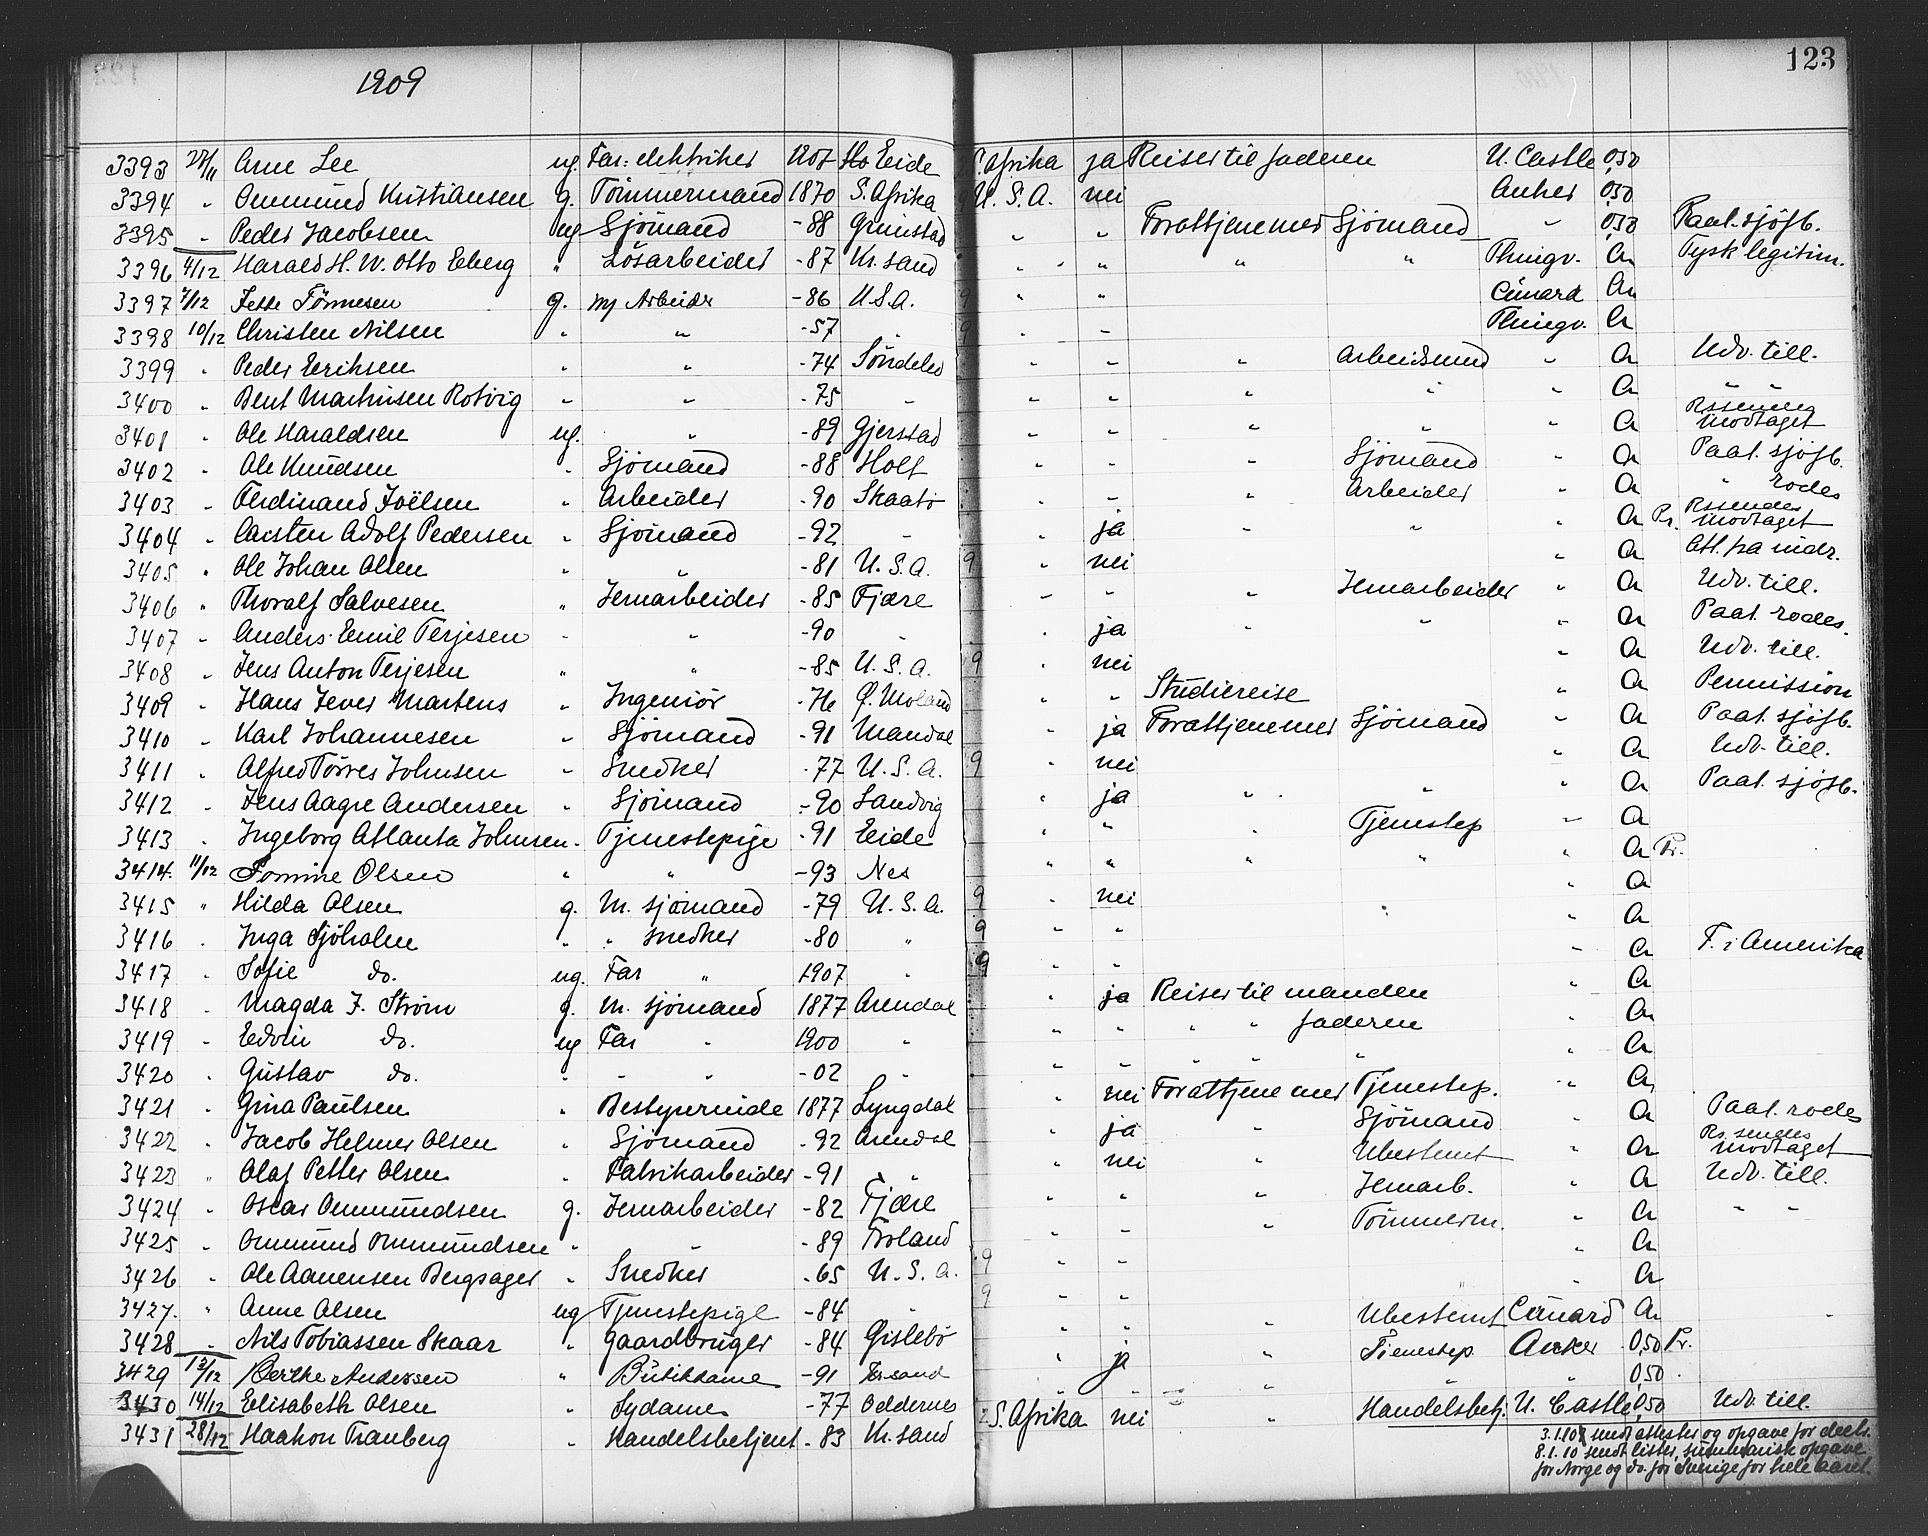 1909
123
3393 27/11 Arne Lee ug. Far: elektriker 1907 Eide S. Afrika ja Reiser til faderen U. Castle 0,50
3394 " Ommund Kristiansen g. Tømmermand 1870 S. Afrika 9 U. S. A. nei Anker 0,50
3395 " Peder Jacobsen ug Sjömand -88 Grimstad " " For at tjene mer Sjömand " 0,50 Paat. sjöfb.
3396 4/12 Harald H. W. Otto Eberg " Lösarbeider -87 Kr. sand " " " " Thingv. a Tysk legitim.
3397 7/12 Jette Tönnesen g. m/ Arbeider -86 U.S.A. 9 " " Cunard a
3398 10/12 Christen Nilsen " " -57 " 9 " " Thingv. a
3399 " Peder Eriksen " " -74 Söndeled " " " Arbeidsmnd " a Udv. till.
3400 " Bent Martinsen Rotvig " " -75 " " " " " " a " "
3401 " Ole Haraldsen ug. " -89 Gjerstad " " " " " a modtaget
3402 " Ole Knudsen " Sjömand -88 Holt " " " Sjömand " a Paat. sjöfb.
3403 " Ferdinand Joëlsen " Arbeider -90 Skaatö " " " Arbeider " a " rodes
3404 " Carsten Adolf Pedersen " Sjömand -92 " " ja " " " a Pr. Ps sendes modtaget
3405 " Ole Johan Olsen " " -81 U. S. A. 9 " nei " a Att. fra indr.
3406 " Thoralf Salvesen " Jernarbeider -85 Fjære " " " Jernarbeider " a Udv. till.
3407 " Anders Emil Terjesen " " -90 " " ja " " " a Paat. rodes.
3408 " Jens Anton Terjesen " " -85 U. S. A. 9 " nei " a Udv. till.
3409 " Hans Jever Martens " Ingeniör -76 Ö. Moland " " Studiereise " a Permission
3410 " Karl Johannesen " Sjömand -91 Mandal " ja For at tjene mer Sjömand " a Paat. sjöfb.
3411 " Alfred Torres Johnsen " Snedker -77 U. S. A. 9 " nei " a Udv. till.
3412 " Jens Aagre Andersen " Sjömand -90 Sandvig " ja " " " a Paat. sjöfb.
3413 " Ingeborg Atlanta Johnsen " Tjenestepige -91 Eide " " " Tjenestep " a
3414. 11/12 Tomine Olsen " " -93 Nes " " " " " a Pr.
3415 " Hilda Olsen g. m. sjömand -79 U. S. A. 9 " nei " a
3416 " Inga Sjöholm " " snedker -80 " 9 " " " a
3417 " Sofie do. ug. Far " 1907 " 9 " " " a F. i Amerika
3418 " Magda J. Ström g. m. sjömand 1877 Arendal " ja Reiser til manden " a
3419 " Edvin do. ug Far " 1900 " " " " " faderen " a
3420 " Gustav do. " " " -02 " " " " " " " a
3421 " Gina Paulsen " Bestyrerinde 1877 Lyngdal " nei For at tjene mer Tjenestep. " a
3422 " Jacob Helmer Olsen " Sjömand -92 Arendal " ja " Sjömand " a Paat. rodes
3423 " Olaf Petter Olsen " Fabrikarbeider -91 " " nei " Ubestemt " a Ps. sendes modtaget
3424 " Oscar Ommundsen g. Jernarbeider -82 Fjære " " " Jernarb. a Udv. till.
3425 " Ommund Ommundsen " " -89 Froland " " " Tömmerm. " a " "
3426 " Ole Aanensen Bergsager " Snedker -65 U. S. A. 9 " " " a
3427. " Anne Olsen ug Tjenestepige -84 " 9 " " " a
3428 " Nils Tobiassen Skaar " Gaardbruger -84 Gislebö " " " Ubestemt Cunard a
3429 13/12 Berthe Andersen " Butikdame -91 Kr.sand " ja " Tjenestep. Anker 0,50 Pr.
3430 14/12 Elisabeth Olsen " Sydame -77 Oddernes " " " " " 0,50
3431 28/12 Haakon Tranberg " Handelsbetjent -83 Kr. sand S. Afrika nei " Handelsbetj. U. Castle 0,50 Udv. till.
3.1.10 sendt attester og opgave for decbr.
8.1.10 sendt lister, summarisk opgave
for Norge og do. for Sverige for hele aaret.